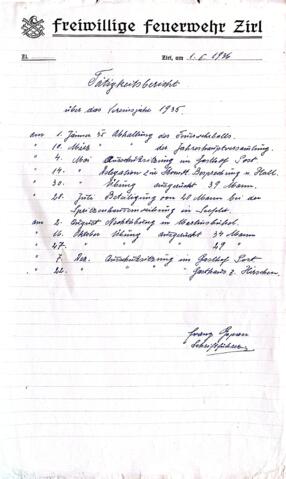 Freiwillige Feuerwehr Zirl
Zl. Zirl, am 1.6.1936
Tätigkeitsbericht
über das Vereinsjahr 1935.
am 1. Jänner 35 Abhaltung des
" 10. März " der Jahreshauptversammlung.
" 4. Mai Ausschußsitzung im Gasthof Post
" 14. " Delegation zur Besprechung n. Hall.
" 30. " Übung ausgerückt 39 Mann.
" 28. Juli Beteiligung von 20 Mann bei der
Spritzenhauseinweihung in Seefeld.
am 2. August Nachtübung in Martinsbühel.
" 16. Oktober Übung ausgerückt 34 Mann
" 27. " " " 29 "
" 7. Dez. Ausschußsitzung im Gasthof Post
" 22. " " Gasthaus z. Hirschen.
Franz
Schriftführer